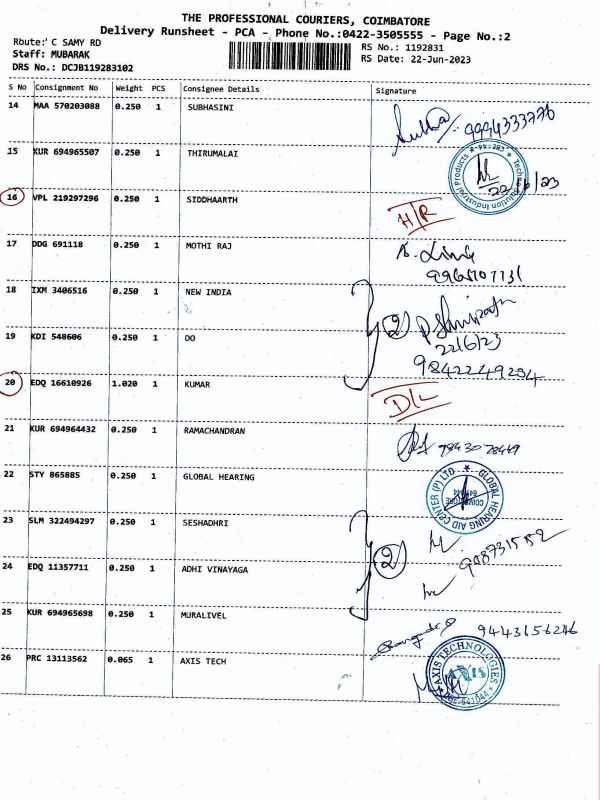 THE PROFESSIONAL COURIERS, COIMBATORE
Delivery Runsheet - PCA - Phone No.:0422-3505555 - Page No.:2
Route: C SAMY RD
Staff: MUBARAK
DRS No.: DCJB119283102
RS No.: 1192831
RS Date: 22-Jun-2023
S No Consignment No Weight PCS Consignee Details Signature
14 MAA 570203088 0.250 1 SUBHASINI 9994333776
15 KUR 694965507 0.250 1 THIRUMALAI
16 VPL 219297296 0.250 1 SIDDHAARTH H/R
17 DDG 691118 0.250 1 MOTHI RAJ
18 IXM 3406516 0.250 1 NEW INDIA 2
19 KDI 548606 0.250 1 DO 22/6/23
9842249204
20 EDQ 16610926 1.020 1 KUMAR D/L
21 KUR 694964432 0.250 1 RAMACHANDRAN
22 STY 865885 0.250 1 GLOBAL HEARING GLOBAL HEARING AID CENTER (P) LTD
23 SLM 322494297 0.250 1 SESHADHRI
24 EDQ 11357711 0.250 1 ADHI VINAYAGA 2
25 KUR 694965698 0.250 1 MURALIVEL
26 PRC 13113562 0.065 1 AXIS TECH AXIS TECHNOLOGIES
AXIS